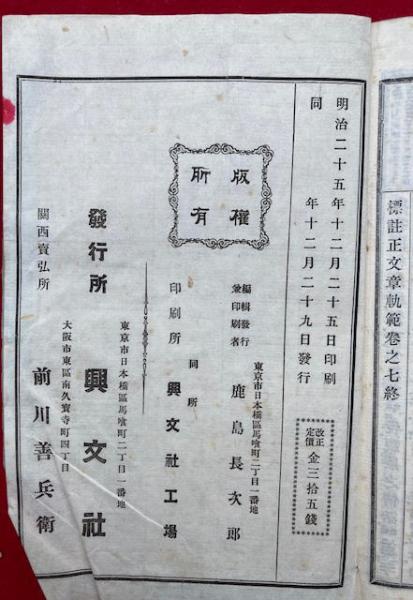 標註正文章軌範卷之七終
明治二十五年十二月二十五日印刷
同年十二月二十九日發行
改正定價
金三拾五錢
版權所有
東京市日本橋區馬喰町二丁目一番地
編輯發行兼印刷者
鹿島長次郎
同所
印刷所
興文社工場
東京市日本橋區馬喰町二丁目一番地
發行所
興文社
大阪市東區南久寶寺町四丁目
關西賣弘所
前川善兵衛